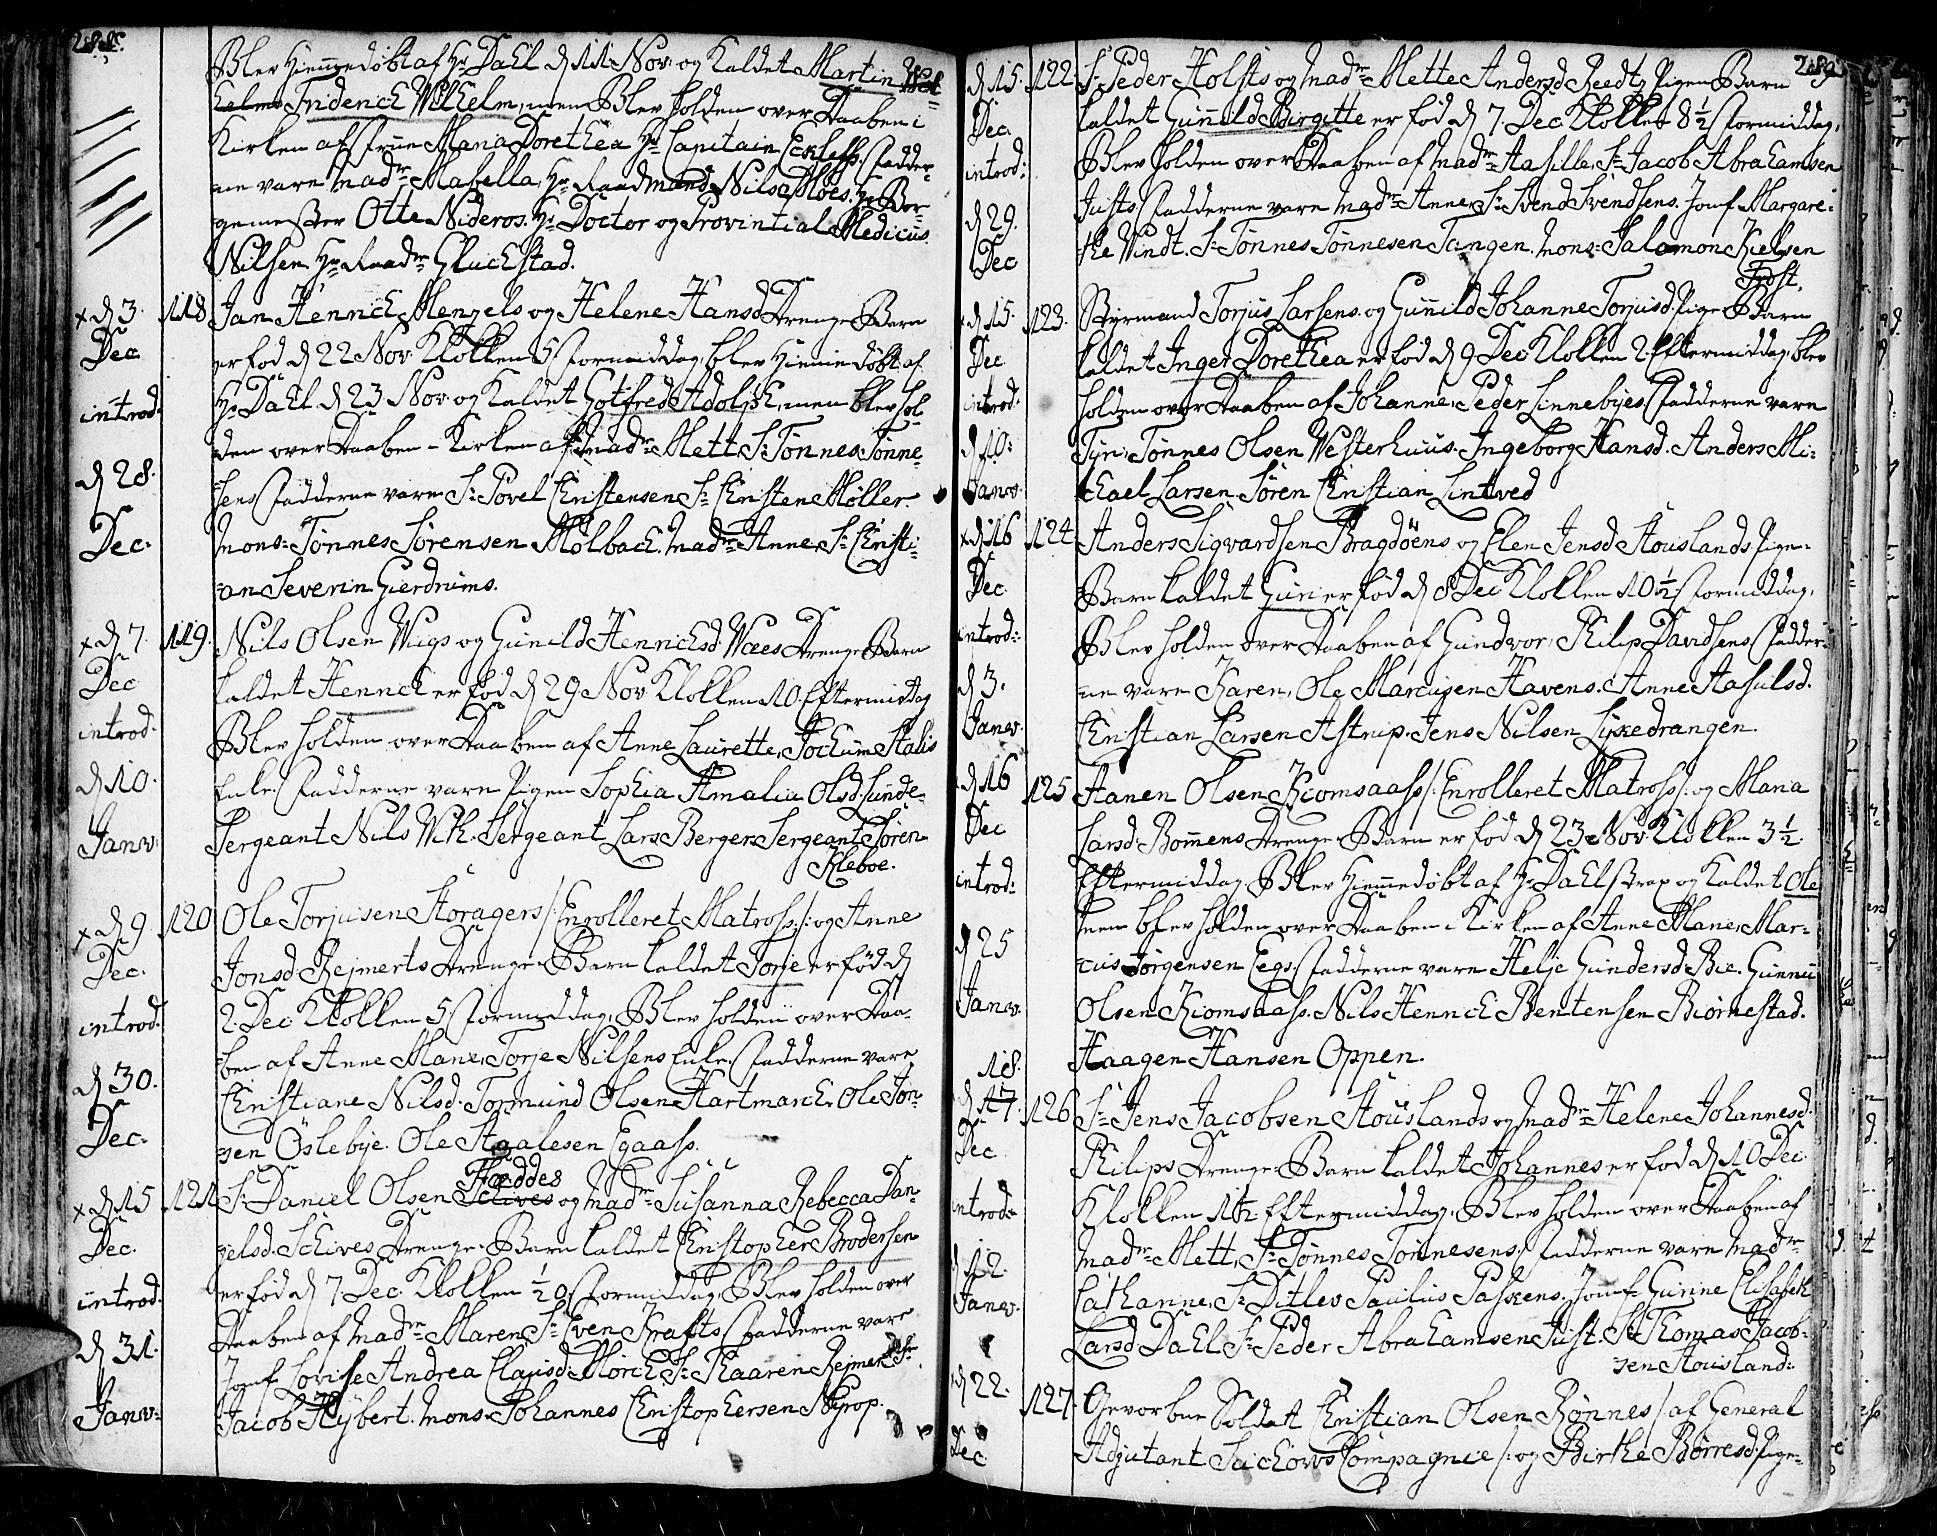 288.
Blev Hiemmedøbt af Hr Dahl d 11 Nov: og kaldet Martin Wil-
helms Friderich Wilhelm, men Blev holden over Daaben i
Kirken af Frue Maria Dorethea Hr Capitain Fadder-
ne vare Madme Mabella, Hr Raadmand Nils Moes. Hr Bor-
gemester Otte Nideros. Hr Doctor og Provintial Medicus
Nilsen Hr Raadm Gluckstad.
x d 3. Dec introd: d 28. Dec:
118 Jan Henrich Mengels og Helene Hansd Drenge Barn
er fød d 22 Nov Klokken 5 Formiddag, blev Hiemmedøbt af
Hr Dahl d 23 Nov og Kaldet Gotfred Adolph, men blev hol-
den over Daaben i Kirken af Madme Mett Sr Tønnes Tønne-
sens Fadderne vare Sr Povel Christensen Sr Christen Møller.
Mons: Tønnes Sørensen Molback, Madme Anne, Sr Christi-
an Severin Gierdrums.
x d 7. Dec introd: d 10. Janv:
119. Nils Olsen Wigs og Gunild Henrichsd. Wees Drenge Barn
kaldet Henrich er fød d 29 Nov Klokken 10. Eftermiddag
Blev holden over Daaben af Anne Laurette, Jochum Stabis
Enke. Fadderne vare Pigen Sophia Amalia Olsd. Sunde.
Sergeant Nils Wih. Sergeant Lars Berger Sergeant Søren
Kleboe.
x d 9. Dec. introd. d 30. Dec.
120 Ole Torjusen Storagers /: Enrolleret Matross :/ og Anne
Jonsd Rejmerts Drenge Barn kaldet Torje er fød d
2. Dec Klokken 5 Formiddag, Blev holden over Daa-
ben af Anne Marie, Torje Nilsens Enke. Fadderne vare
Christiane Nilsd. Tormund Olsen Hartmarck, Ole Jon-
sen Oslebye. Ole Staalesen Egaass.
x d 15 Dec. introd. d 31. Janv:
Fladdes
121 Sr Daniel Olsen Schives og Madme Susanna Rebecca Dan-
ielsd. Schives Drenge Barn kaldet Christopher Brodersen
er fød d 7 Dec Klokken ½ 9 Formiddag, Blev holden over
Daaben af Madme Maren, Sr Even Krafts Fadderne vare
Jomf Lovise Andrea Clausd. Mørch Sr Kaaren Rejmert Sr
Jacob Hybert. Mons: Johannes Christophersen Nyrop.
289
d 15. Dec. introd: d 29. Dec
122. Sr Peder Holsts og Madme Mette Andersd Reedtz Pigen Barn
kaldet Gunild Birgitte er fød d 7. Dec Klokket 8½ Formiddag,
Blev holden over Daaben af Madme Aasille, Sr Jacob Abrahamsen
Justs Fadderne vare Madme Anne, Sr Svend Svendsens. Jomf Margare-
the Windt. Sr Tønnes Tønnesen Tangen. Mons: Salomon Kielsen
Tydst.
x d 15. Dec introd: d 10: Janv.
123. Styrmand Torjus Larsens og Gunild Johanne Torjusd. Pige Barn
kaldet Inger Dorethea er fød d 9 Dec Klokken 2. Eftermiddag, blev
holden over Daaben af Johanne, Peder Linnebyes. Fadderne vare
Tyri, Tønnes Olsen Westerhuus. Ingeborg Hansd. Anders Mi-
chael Larsen Søren Christian Lintved
x d 16 Dec. introd: d 3. Janv.
124 Anders Sigvardsen Bragdøens og Elen Jensd Stouslands Pige
Barn kaldet Guri er fød d 8 Dec Klokken 10½ Formiddag,
Blev holden over Daaben af Gundvor, Philip Davidsens Fadder-
ne vare Karen, Ole Marcusen Havens. Anne Aasulsd.
Christian Larsen Astrup. Jens Nilsen Lyxedrangen.
d 16 Dec introd: d 25 Janv.
125 Hanen Olsen Kiomsaass /: Enrolleret Matross :/ og Maria
Larsd. Bommens Drenge Barn er fød d 23 Nov. Klokken 3½
Eftermiddag, Blev Hiemmedøbt af Hr Dahl strax og Kaldet Ole
men blev holden over Daaben i Kirken af Anne Marie, Mar-
cus Jørgensen Eegs. Fadderne vare Helje Gundersd Bie. Gunnu
Olsen Kiomsaass. Nils Henrich Bentensen Biørnestad.
Haagen Hansen Oppen.
18. d 17. Dec introd: d 12. Janv.
126 Sr Jens Jacobsen Stouslands og Madme Helene Johannesd.
Philips Drenge Barn kaldet Johannes er fød d 10 Dec.
Klokken 1½ Eftermiddag, Blev holden over Daaben af
Madme Mett, Sr Tønnes Tønnesens. Fadderne vare Madme
Cathanne, Sr Ditlev Paulus Paskens. Jomf: Gurine Elisabeth
Larsd Dahl Sr Peder Abrahamsen Just. Sr Thomas Jacob-
sen Stousland:
d 22. Dec
127. Gevorben Soldat Christian Olsen Rønnes /: af General
Adjutant Suchows Compagnie :/ og Birthe Børresd. Pige-